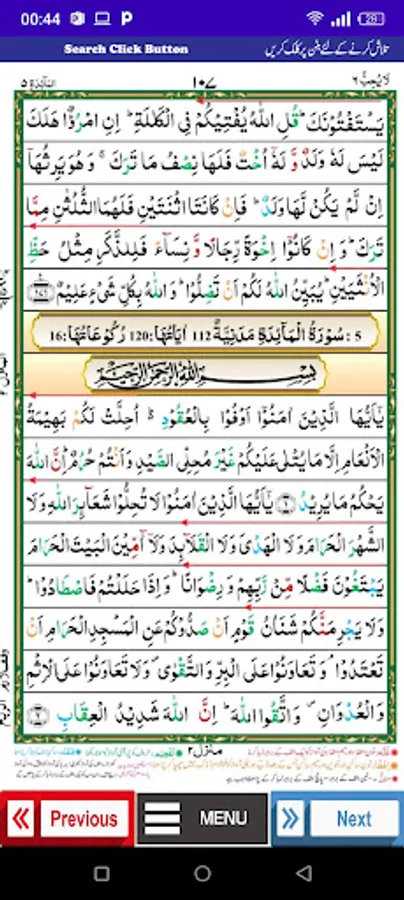 00:44
28
Search Click Button
تلاش کرنے کے لئے بٹن پر کلک کریں
المآئدۃ ۵
۱۰۷
لا یحب اللہ ۶
یَسْتَفْتُوْنَكَ ؕ قُلِ اللّٰهُ یُفْتِیْكُمْ فِی الْكَلٰلَةِ ؕ اِنِ امْرُؤٌا هَلَكَ
لَیْسَ لَهٗ وَلَدٌ وَّ لَهٗۤ اُخْتٌ فَلَهَا نِصْفُ مَا تَرَكَ ۚ وَ هُوَ یَرِثُهَاۤ
اِنْ لَّمْ یَكُنْ لَّهَا وَلَدٌ ؕ فَاِنْ كَانَتَا اثْنَتَیْنِ فَلَهُمَا الثُّلُثٰنِ مِمَّا
تَرَكَ ؕ وَ اِنْ كَانُوْۤا اِخْوَةً رِّجَالًا وَّ نِسَآءً فَلِلذَّكَرِ مِثْلُ حَظِّ
الْاُنْثَیَیْنِ ؕ یُبَیِّنُ اللّٰهُ لَكُمْ اَنْ تَضِلُّوْا ؕ وَ اللّٰهُ بِكُلِّ شَیْءٍ عَلِیْمٌ
5 : سُوْرَةُ الْمَآئِدَةِ مَدَنِیَّةٌ 112 اٰیَاتُهَا:120 رُكُوْعَاتُهَا:16
بِسْمِ اللّٰهِ الرَّحْمٰنِ الرَّحِیْمِ
یٰۤاَیُّهَا الَّذِیْنَ اٰمَنُوْۤا اَوْفُوْا بِالْعُقُوْدِ ؕ اُحِلَّتْ لَكُمْ بَهِیْمَةُ
الْاَنْعَامِ اِلَّا مَا یُتْلٰی عَلَیْكُمْ غَیْرَ مُحِلِّی الصَّیْدِ وَ اَنْتُمْ حُرُمٌ ؕ اِنَّ اللّٰهَ
یَحْكُمُ مَا یُرِیْدُ ۱ یٰۤاَیُّهَا الَّذِیْنَ اٰمَنُوْا لَا تُحِلُّوْا شَعَآىِٕرَ اللّٰهِ وَ لَا
الشَّهْرَ الْحَرَامَ وَ لَا الْهَدْیَ وَ لَا الْقَلَآىِٕدَ وَ لَاۤ آٰمِّیْنَ الْبَیْتَ الْحَرَامَ
یَبْتَغُوْنَ فَضْلًا مِّنْ رَّبِّهِمْ وَ رِضْوَانًا ؕ وَ اِذَا حَلَلْتُمْ فَاصْطَادُوْا ؕ
وَ لَا یَجْرِمَنَّكُمْ شَنَاٰنُ قَوْمٍ اَنْ صَدُّوْكُمْ عَنِ الْمَسْجِدِ الْحَرَامِ اَنْ
تَعْتَدُوْا ۘ وَ تَعَاوَنُوْا عَلَی الْبِرِّ وَ التَّقْوٰی ۪ وَ لَا تَعَاوَنُوْا عَلَی الْاِثْمِ
وَ الْعُدْوَانِ ۪ وَ اتَّقُوا اللّٰهَ ؕ اِنَّ اللّٰهَ شَدِیْدُ الْعِقَابِ ۲
منزل ۲
Previous
MENU
Next